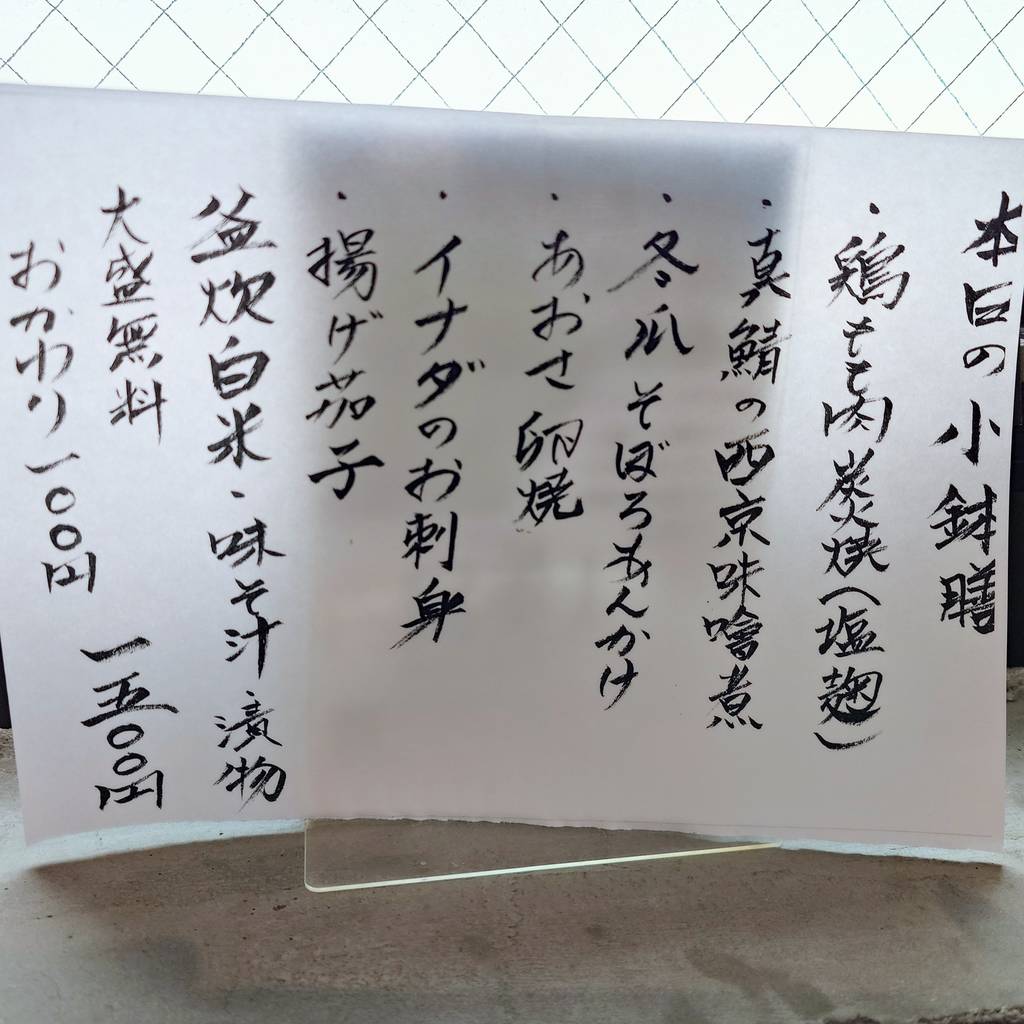 本日の小鉢膳
・鶏もも肉炭火焼(塩麹)
・真鯖の西京味噌煮
・冬瓜そぼろあんかけ
・あおさ卵焼
・イナダのお刺身
・揚げ茄子
釜炊白米・味そ汁漬物
大盛無料
おかわり一〇〇円
一五〇〇円